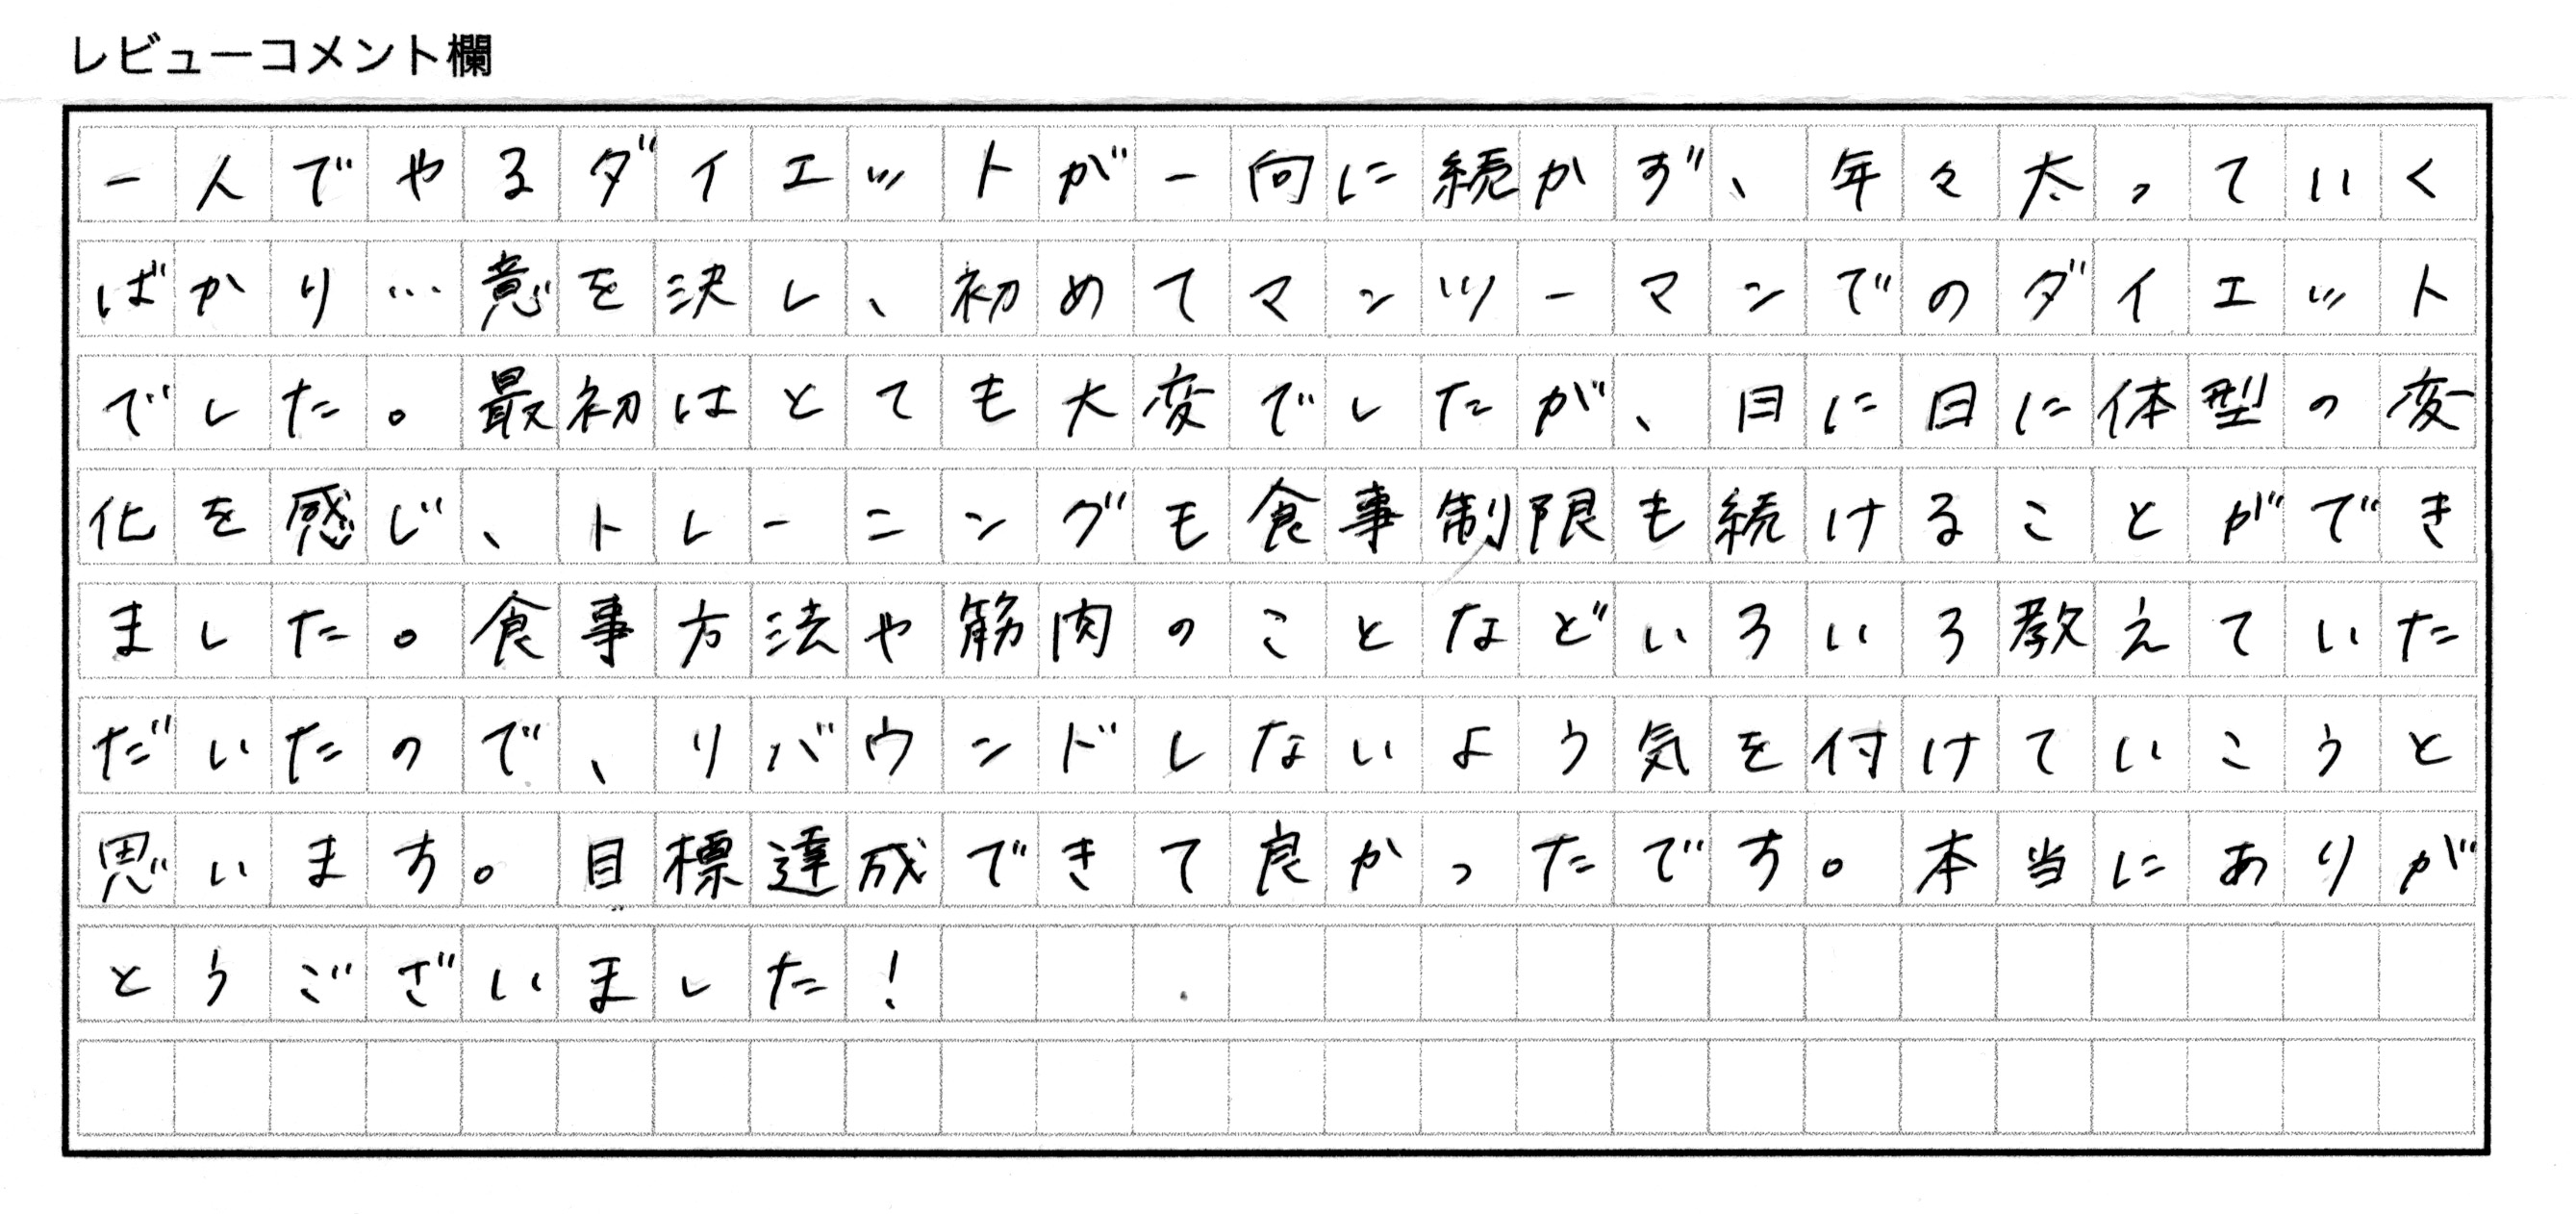 レビューコメント欄
一人でやるダイエットが一向に続かず、年々太っていく
ばかり…意を決し、初めてマンツーマンでのダイエット
でした。最初はとても大変でしたが、日に日に体型の変
化を感じ、トレーニングも食事制限も続けることができ
ました。食事方法や筋肉のことなどいろいろ教えていた
だいたので、リバウンドしないよう気を付けていこうと
思います。目標達成できて良かったです。本当にありが
とうございました！